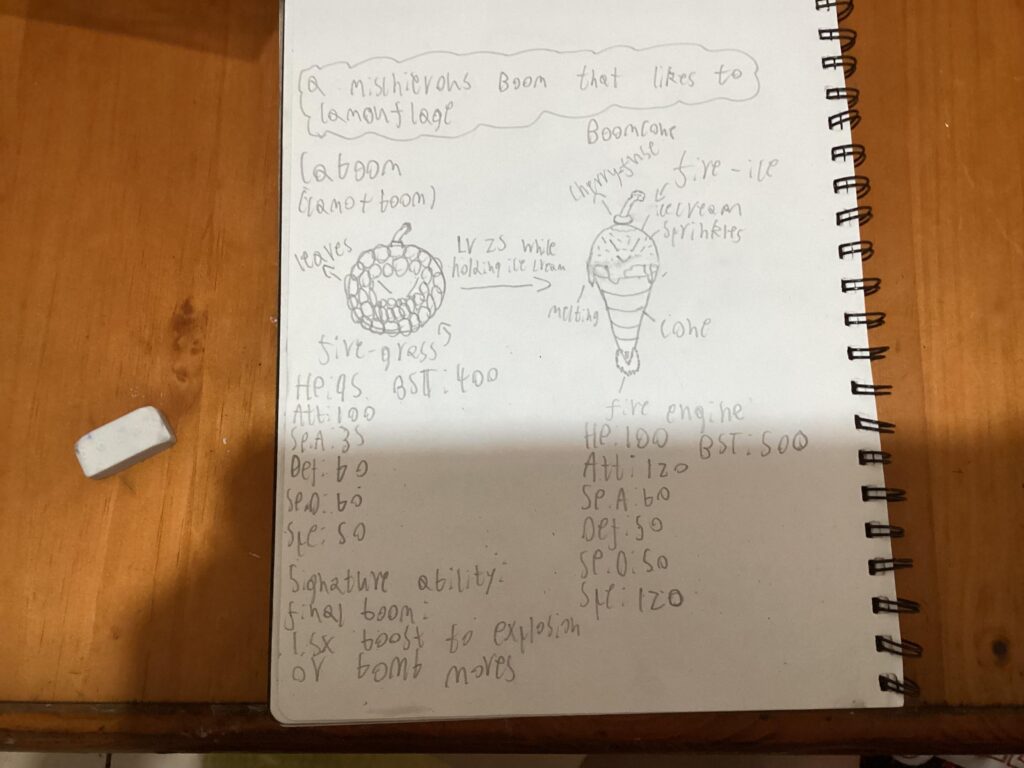 a mischierous Boom that likes to
camouflage
Caboom
(camo + boom)
leaves
fire-grass
LV 25 while
holding ice cream
Boomcone
cherry fuse
fire-ice
icecream
sprinkles
melting
cone
fire engine
He:95 BST:400
Att:100
Sp.A:35
Def:60
Sp.D:60
Spe:50
Signature ability:
final boom:
1.5x boost to explosion
or bomb moves
He:100 BST:500
Att:120
Sp.A:60
Def:50
Sp.D:50
Spe:120